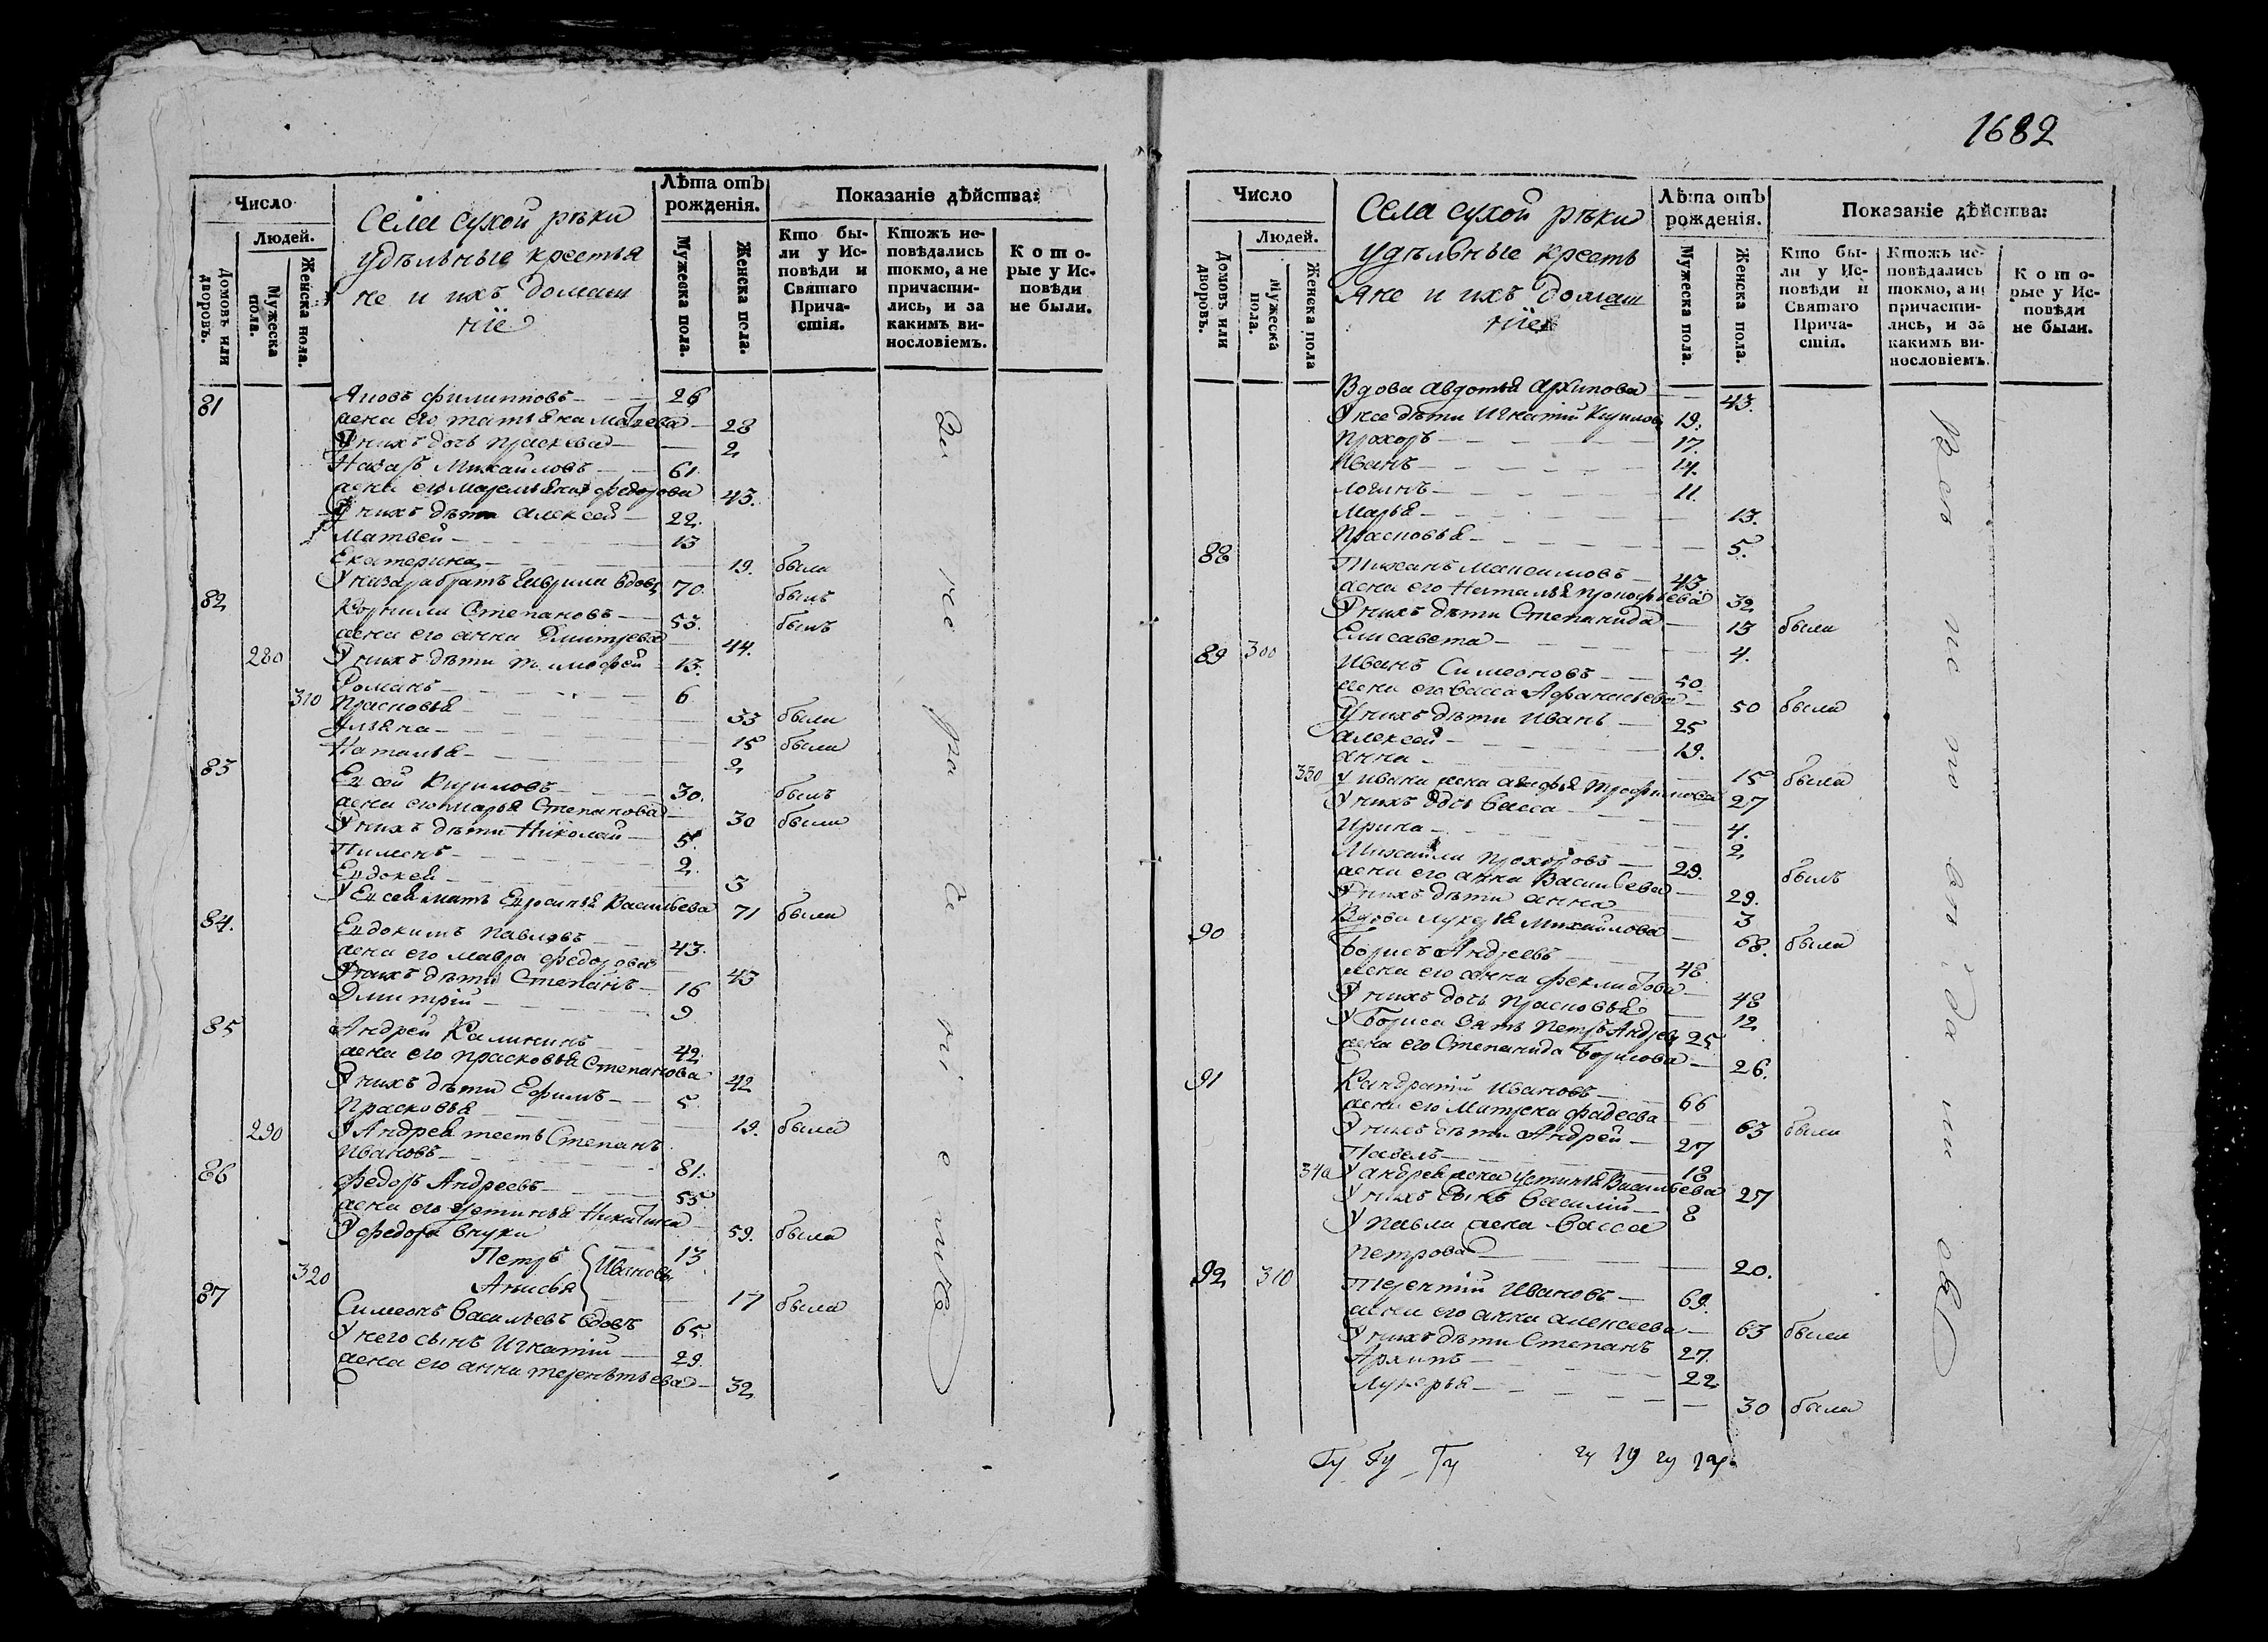 1682
Число
Людей.
Домовъ или дворовъ.
Мужеска пола.
Женска пола.
Села сухой рѣки
удѣльные крестья
не и ихъ домаш
ніе
Лѣта отъ
рожденія.
Мужеска пола.
Женска пола.
Показаніе дѣйства:
Кто бы-
ли у Ис-
повѣди и
Святаго
Прича-
стія.
Ктожъ ис-
повѣдались
токмо, а не
причасти-
лись, и за
какимъ ви-
нословіемъ.
Кото-
рые у Ис-
повѣди
не были.
81 Яковъ филипповъ 26
жена его татьяна 28
У нихъ дочь праскева 2
Назаръ Михаиловъ 61
жена его федорова 43.
У нихъ дѣти алексей 22.
Матвей 13
Екатерина 19. была
У назара братъ Гаврила вдовъ 70. былъ
82 Корнили Степановъ 53. былъ
жена его анна Дмитрева 44.
280 У нихъ дѣти тимофей 13.
Романъ 6
310 Прасковья 33 была
Ульяна 15 была
Наталья 2
83 Евсей Кириловъ 30. былъ
жена его марья Степанова 30 была
У нихъ дѣти Николай 5.
Пименъ 2.
Евдокея 3
У Евсея мать Васильева 71 была
84. Евдокимъ Павловъ 43.
жена его мавра федорова 43
У нихъ дѣти Степанъ 16
Дмитрій 9
85 Андрей Калининъ 42
жена его прасковья Степанова 42
У нихъ дѣти Ефимъ 5
Прасковья 19. была
290 У Андрея тесть Степанъ
Ивановъ 81.
86 Федоръ Андреевъ 55
жена его Устинья Никитина 59. была
У федора внуки
Петръ 13
Ивановы
320 Анисья 17 была
87 Симеонъ Васильевъ вдовъ 65.
У него сынъ Игнатій 29.
жена его анна терентьева 32
За не ра де ні е мъ
Число
Людей.
Домовъ или дворовъ.
Мужеска пола.
Женска пола
Села сухой рѣки
удѣльные кресть
яне и ихъ домаш
ніе
Лѣта отъ
рожденія.
Мужеска пола.
Женска пола.
Показаніе дѣйства:
Кто бы-
ли у Ис-
повѣди и
Святаго
Прича-
стія.
Ктожъ ис-
повѣдались
токмо, а не
причасти-
лись, и за
какимъ ви-
нословіемъ.
Кото-
рые у Ис-
повѣди
не были.
Вдова авдотья архипова 43.
У нее дѣти Игнатій Кирилов 19.
Прохоръ 17.
Иванъ 14.
Логинъ 11.
Марья 13.
Прасковья 5.
88 Тиханъ Максимовъ 43.
жена его Наталья прокофьева 32
У нихъ дѣти Степанида 13 была
Елисавета 4.
89 300 Иванъ Симеоновъ 50.
жена его васса Афанасьева 50 была
У нихъ дѣти Иванъ 25
алексей 19.
анна 15 была
330 У ивана жена трофимова 27
У нихъ дочь васса 4.
Ирина 2
Михаила прохоровъ 29. былъ
жена его анна Васильева 29.
У нихъ дѣти анна 3
Вдова лукерья Михайлова 68. была
90 Борисъ Андреевъ 48
жена его анна 48
У нихъ дочь прасковья 12
У Бориса зять Петръ Андрев 25
жена его Степанида Борисова 26.
91 Кандратій Ивановъ 66
жена его Матрена фадеева 63 была
У нихъ дѣти Андрей 27
Павелъ 18
340 У андрея жена Устинья Васильева 27
У нихъ сынъ василий 8
У павла жена васса
петрова 20.
92 310 Терентій Ивановъ 69.
жена его анна алексеева 63 была
У нихъ дѣти Степанъ 27.
Архипъ 22
Лукерья 30 была